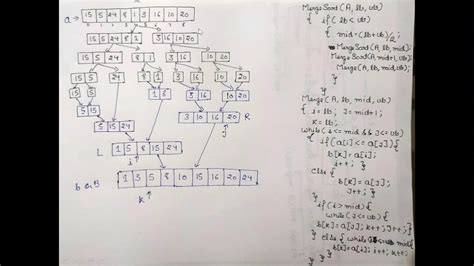 a → 15 5 24 8 1 3 16 10 20
0 1 2 3 4 5 6 7 8
15 5 24 8 1 3 16 10 20
15 5 24 8 1 3 16 10 20
15 5 24 8 1 3 16 10 20
15 5 1 8
5 15 3 16 10 20
5 15 24 3 10 16 20 R
j
L 1 5 8 15 24
i
b 1 3 5 8 10 15 16 20 24
k
MergeSort (A, lb, ub)
{ if (lb < ub)
{ mid = (lb+ub)/2;
MergeSort (A, lb, mid);
MergeSort (A, mid+1, ub);
Merge (A, lb, mid, ub)
}
}
Merge (A, lb, mid, ub)
{ i = lb; j = mid+1;
k = lb;
while (i <= mid && j <= ub)
{ if (a[i] <= a[j]) {
b[k] = a[i];
i++; }
else {
b[k] = a[j];
j++; }
}
if (i > mid) {
while (j <= ub) {
b[k] = a[j]; k++; j++; }
}
else { while (i <= mid) {
b[k] = a[i]; i++; k++;
}
} }